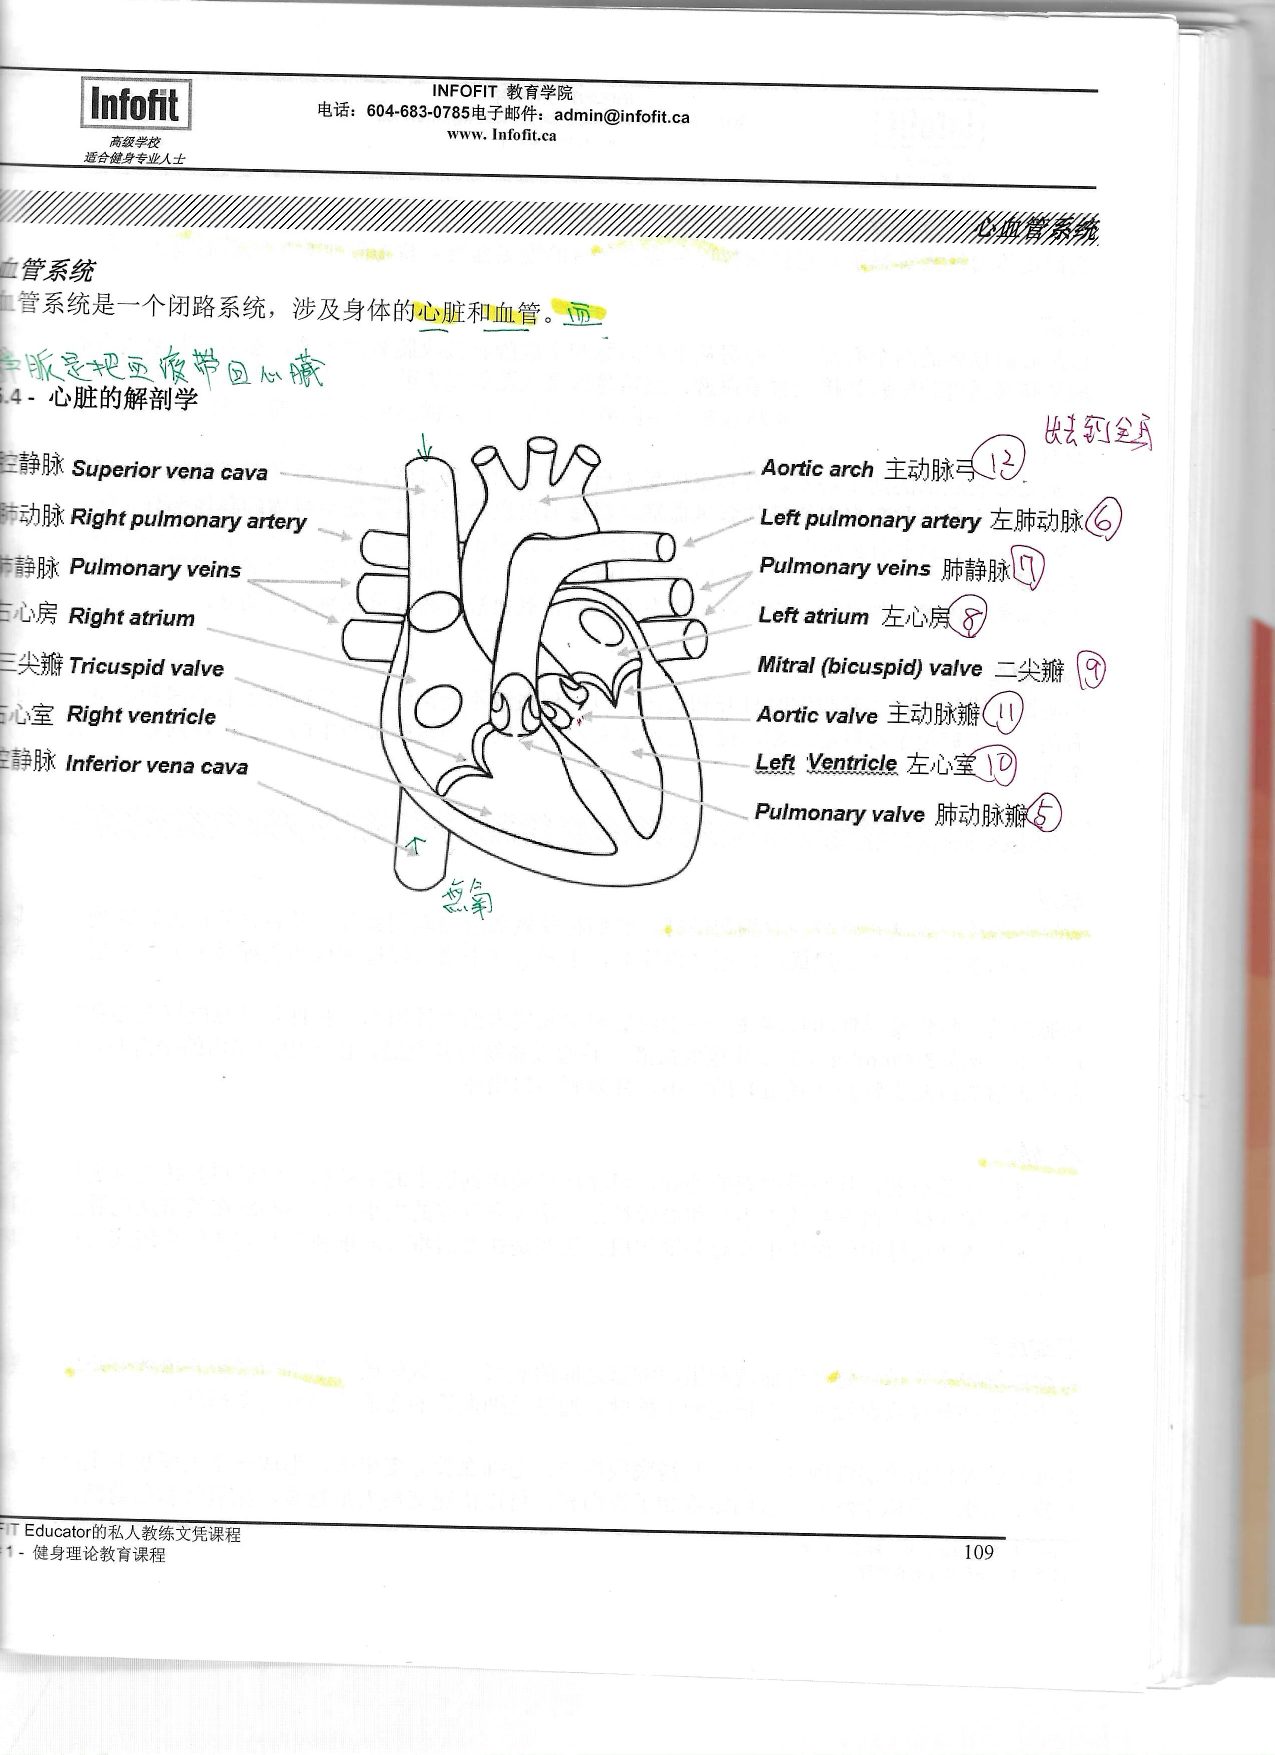 Infofit
高级学校
适合健身专业人士
INFOFIT 教育学院
电话：604-683-0785电子邮件：admin@infofit.ca
www. Infofit.ca
心血管系统
血管系统
血管系统是一个闭路系统，涉及身体的心脏和血管。 血
脈是把血液帶回心臟
.4 - 心脏的解剖学
出去到全身
腔静脉 Superior vena cava
肺动脉 Right pulmonary artery
肺静脉 Pulmonary veins
右心房 Right atrium
三尖瓣 Tricuspid valve
右心室 Right ventricle
腔静脉 Inferior vena cava
Aortic arch 主动脉弓 12
Left pulmonary artery 左肺动脉 6
Pulmonary veins 肺静脉 7
Left atrium 左心房 8
Mitral (bicuspid) valve 二尖瓣 9
Aortic valve 主动脉瓣 11
Left Ventricle 左心室 10
Pulmonary valve 肺动脉瓣 5
無氧
FIT Educator的私人教练文凭课程
1 - 健身理论教育课程
109